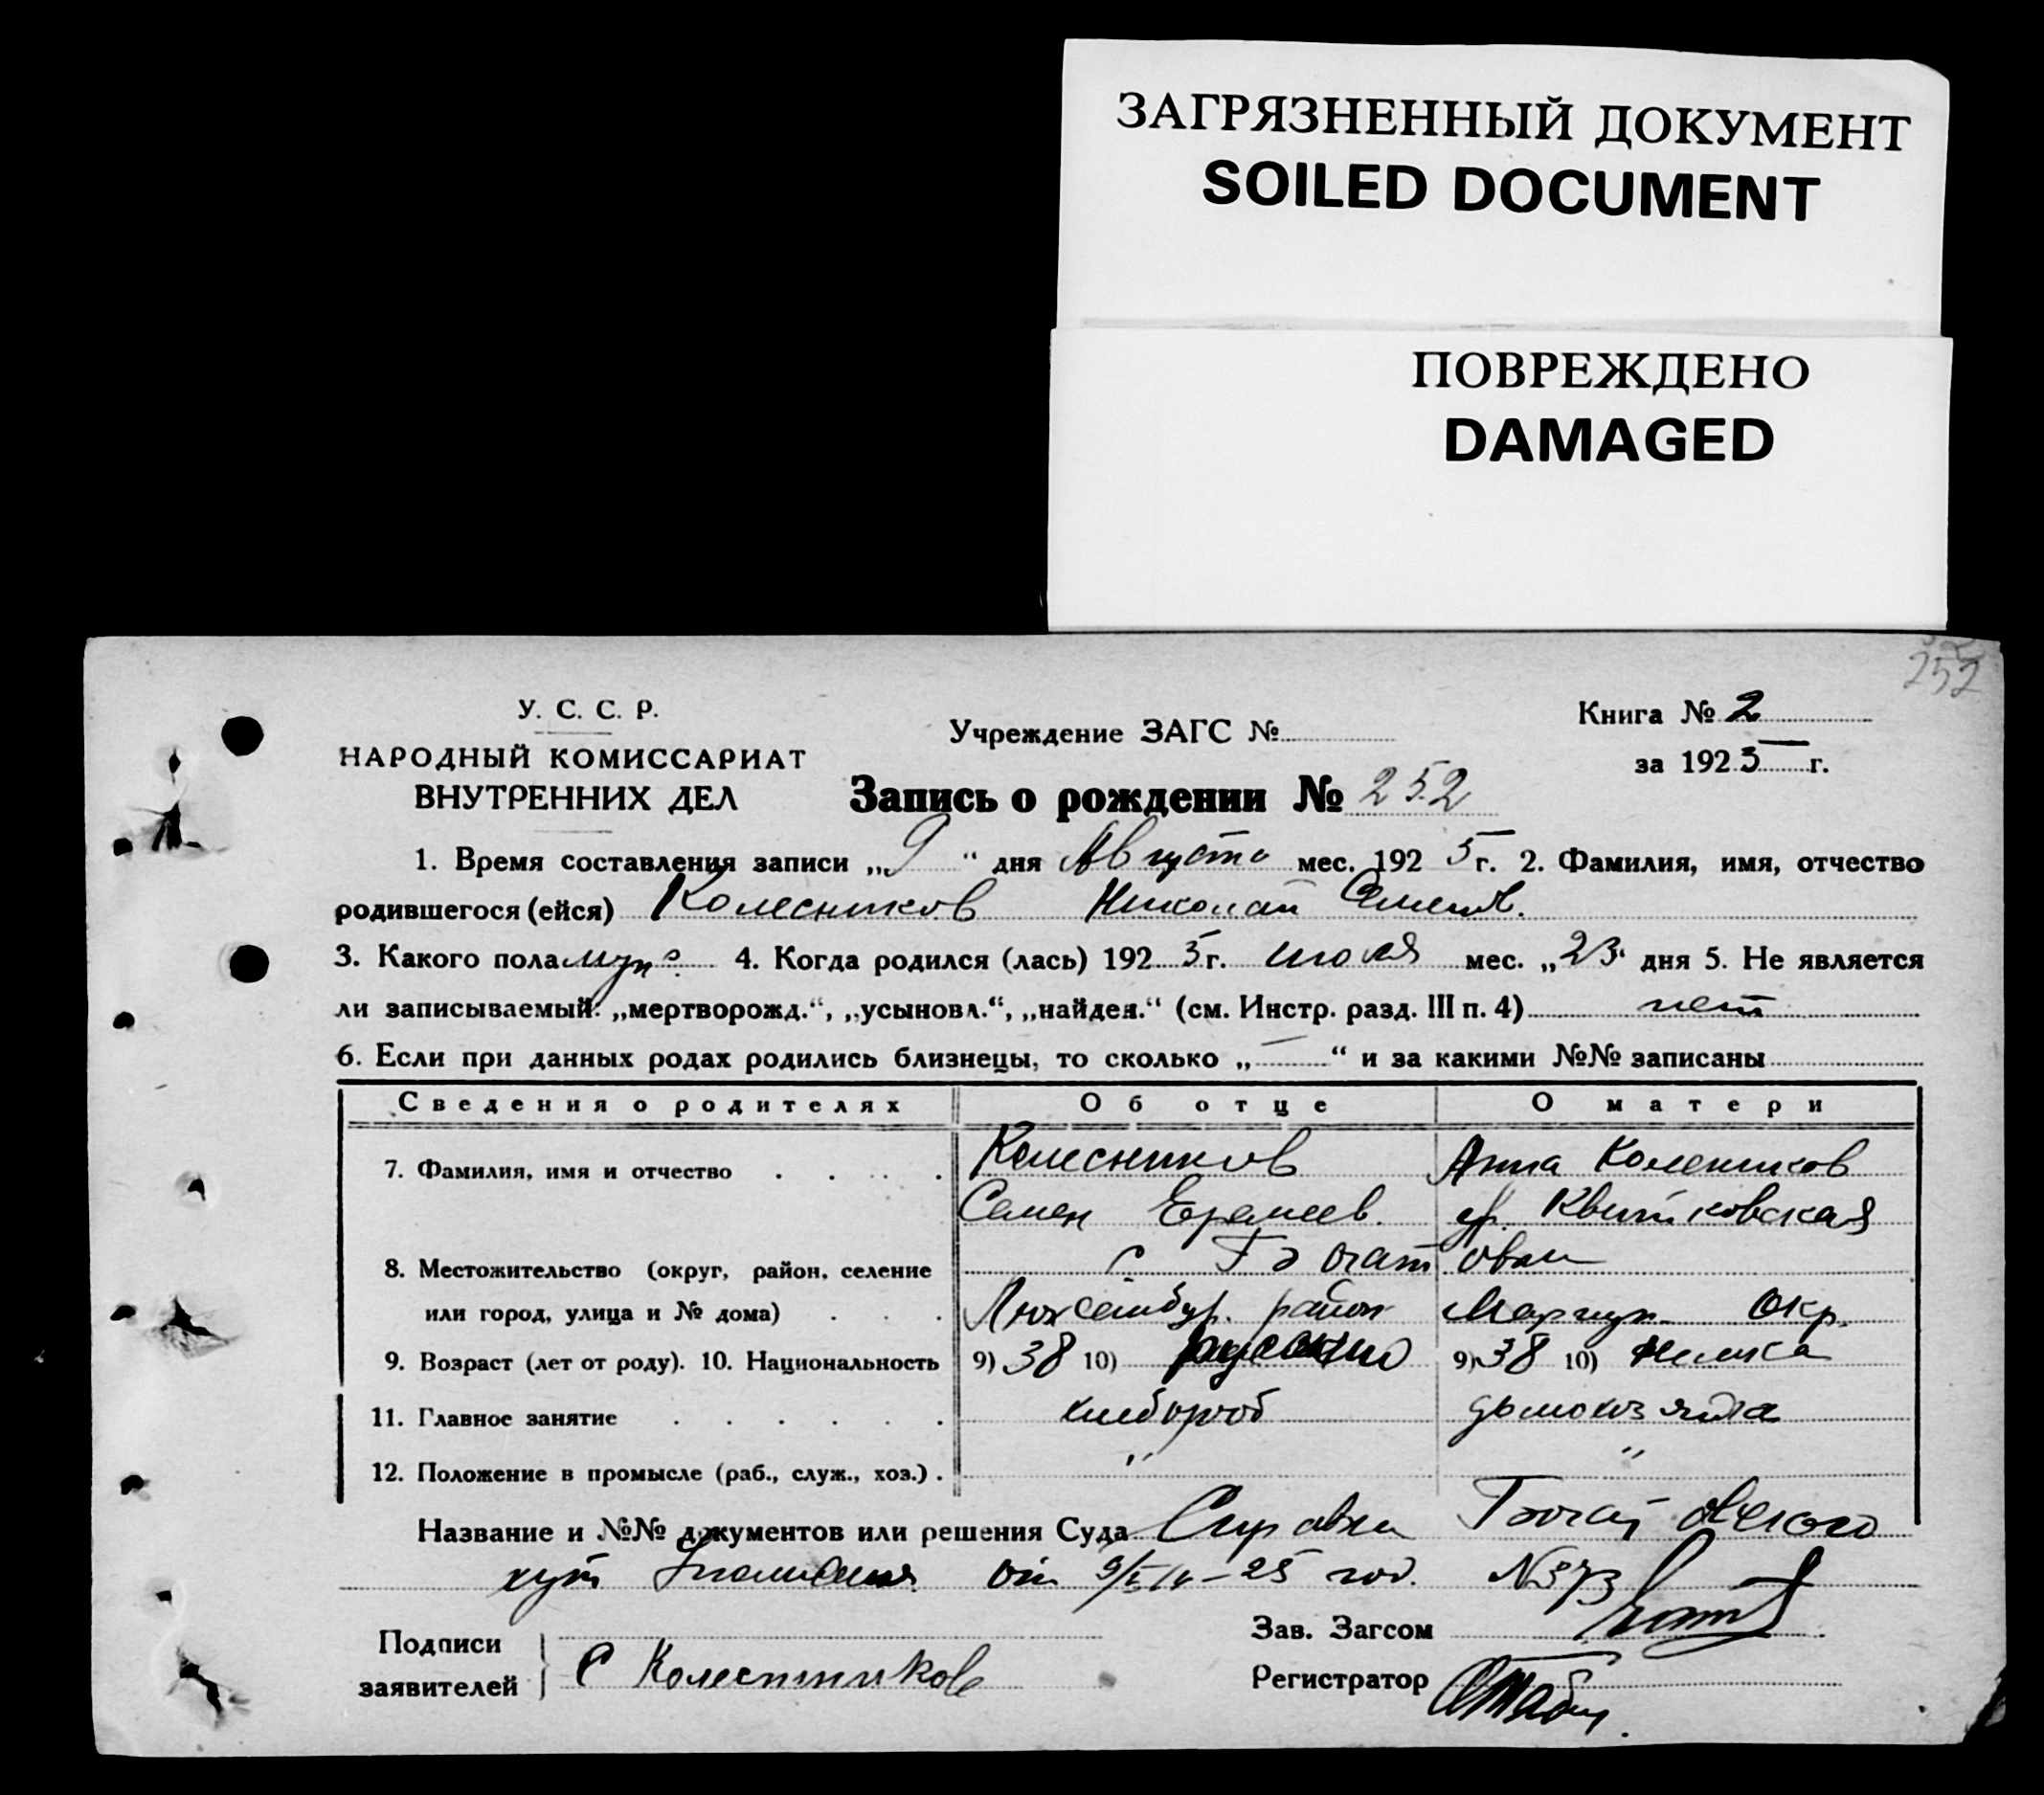 ЗАГРЯЗНЕННЫЙ ДОКУМЕНТ
SOILED DOCUMENT
ПОВРЕЖДЕНО
DAMAGED
252
У. С. С. Р.
НАРОДНЫЙ КОМИССАРИАТ
ВНУТРЕННИХ ДЕЛ
Учреждение ЗАГС №
Книга № 2
за 1925 г.
Запись о рождении № 252
1. Время составления записи „9“ дня Августа мес. 1925 г. 2. Фамилия, имя, отчество
родившегося (ейся) Колесников Николай Семенов.
3. Какого пола муж. 4. Когда родился (лась) 1925 г. июля мес. „23“ дня 5. Не является
ли записываемый: „мертворожд.“, „усыновл.“, „найден.“ (см. Инстр. разд. III п. 4) нет
6. Если при данных родах родились близнецы, то сколько „—“ и за какими №№ записаны
Сведения о родителях Об отце О матери
7. Фамилия, имя и отчество . . . . Колесников Анна Колесников
Семен Еремеев. Квитковская
8. Местожительство (округ, район, селение с
или город, улица и № дома) . . . Люксембур. район Мариуп. Окр.
9. Возраст (лет от роду). 10. Национальность 9) 38 10) русский 9) 38 10) Немка
11. Главное занятие . . . . . . хлебороб домохозяйка
12. Положение в промысле (раб., служ., хоз.) . " "
Название и №№ документов или решения Суда Справка
хут от 25 год. №373
Подписи
заявителей
С Колесников
Зав. Загсом
Регистратор